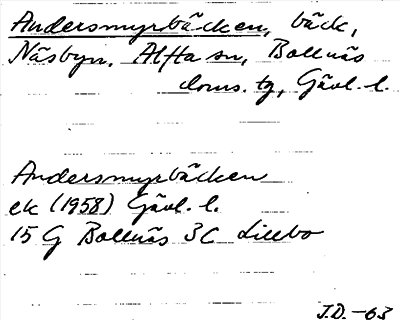 Andersmyrbäcken, bäck,
Näsbyn, Alfta sn, Bollnäs
doms. tg, Gävl. l.
Andersmyrbäcken
ek (1958) Gävl. l.
15 G Bollnäs 3C Lillbo
J.D. -63